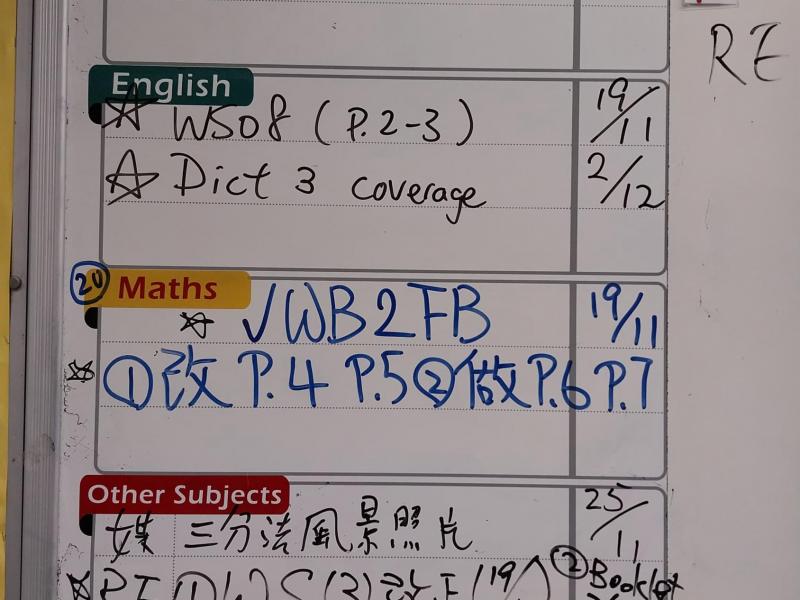 RE
English
☆ WS08 (P.2-3) 19/11
☆ Dict 3 coverage 2/12
Maths
☆ √WB2FB 19/11
☆ ①改 P.4 P.5 ②做 P.6 P.7
Other Subjects
媒 三分法風景照片 25/11
☆ RE ① WS(3)改正 (19 ② Booklet